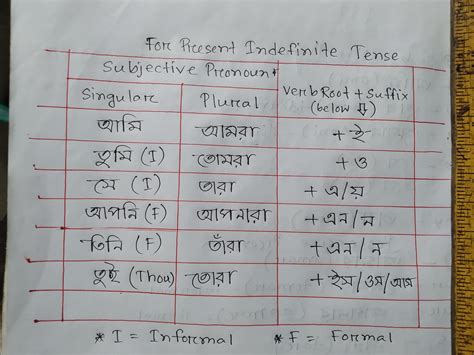 For Present Indefinite Tense
Subjective Pronoun +
Verb Root + Suffix
(below ⇩)
Singular Plural
আমি আমরা + ই
তুমি (I) তোমরা + ও
সে (I) তারা + এ/য়
আপনি (F) আপনারা + এন/ন
তিনি (F) তাঁরা + এন/ন
তুই (Thou) তোরা + ইস/ওস/আস
* I = Informal * F = Formal